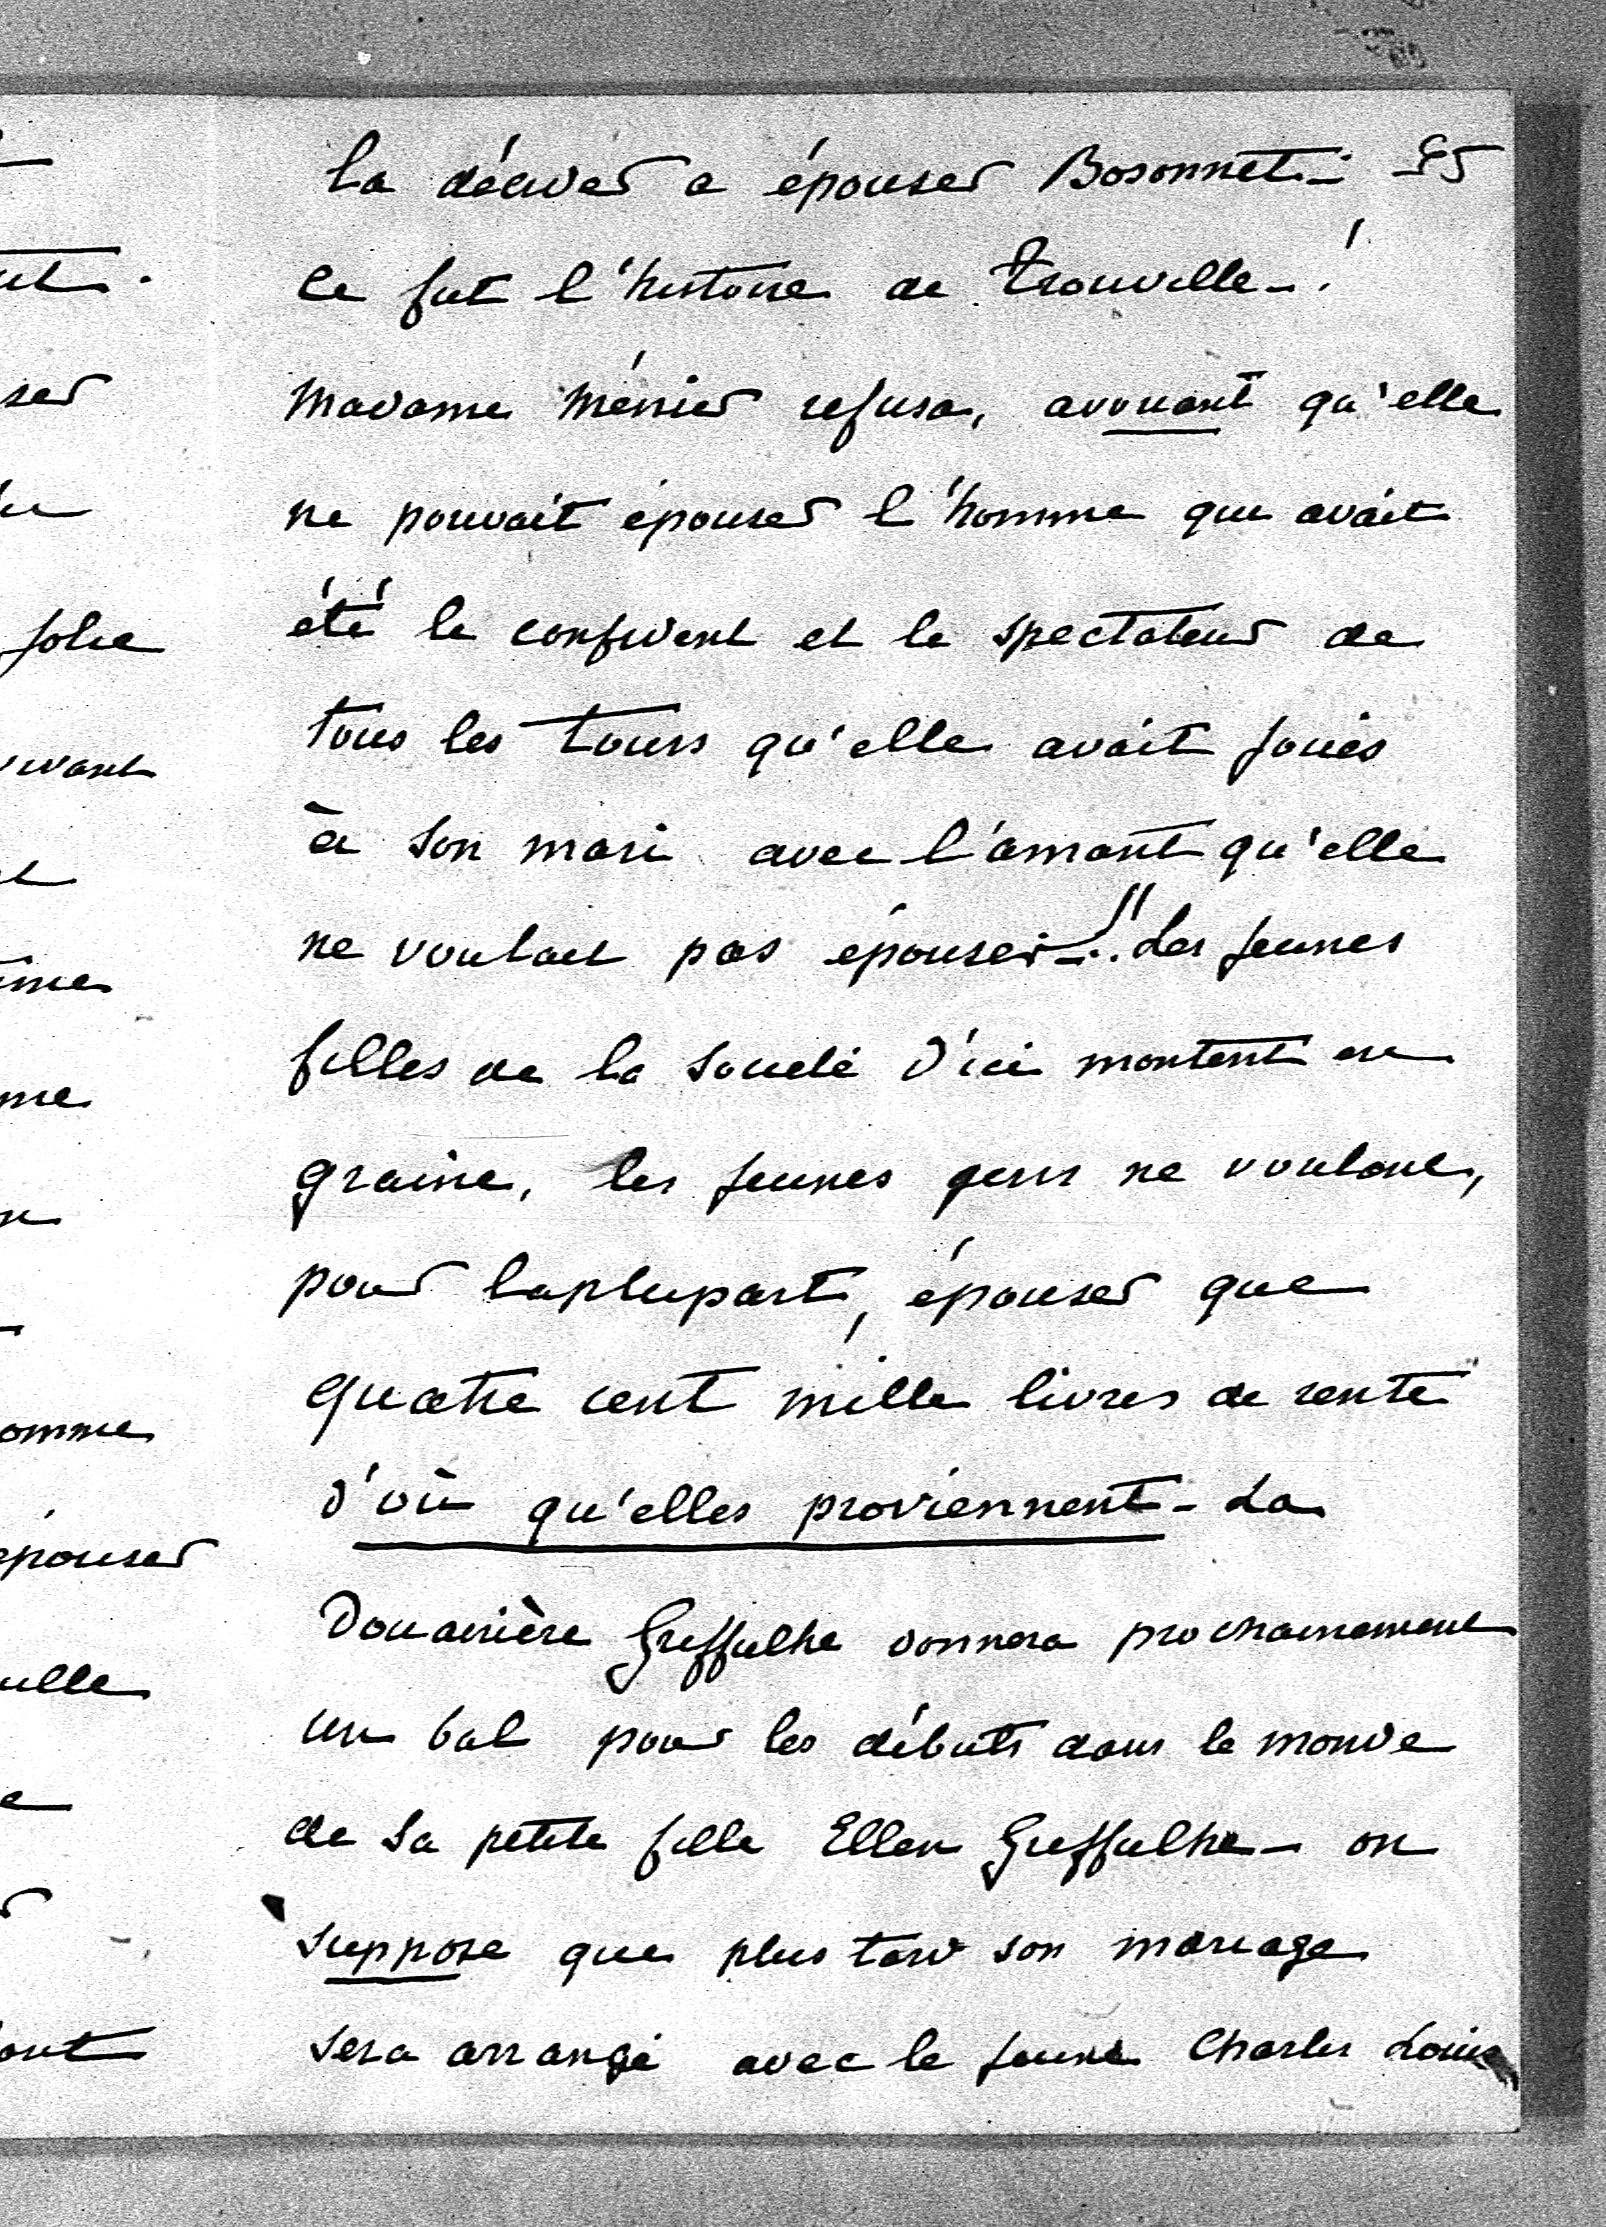 la décider a épouser Bosonnet.- 55
Ce fut l'histoire de Trouville-!
Madame Ménier refusa, avouant qu'elle
ne pouvait épouser l'homme qui avait
été le confident et le spectateur de
tous les tours qu'elle avait joués
à son mari avec l'amant qu'elle
ne voulait pas épouser-!! Les jeunes
filles de la société d'ici montent en
graine, les jeunes gens ne voulant,
pour la plupart, épouser que
quatre cent mille livres de rente
d'où qu'elles proviennent - La
Douairière Greffulhe donnera prochainement
un bal pour les débuts dans le monde
de sa petite fille Ellen Greffulhe - on
suppose que plus tard son mariage
sera arrangé avec le jeune Charles Louis